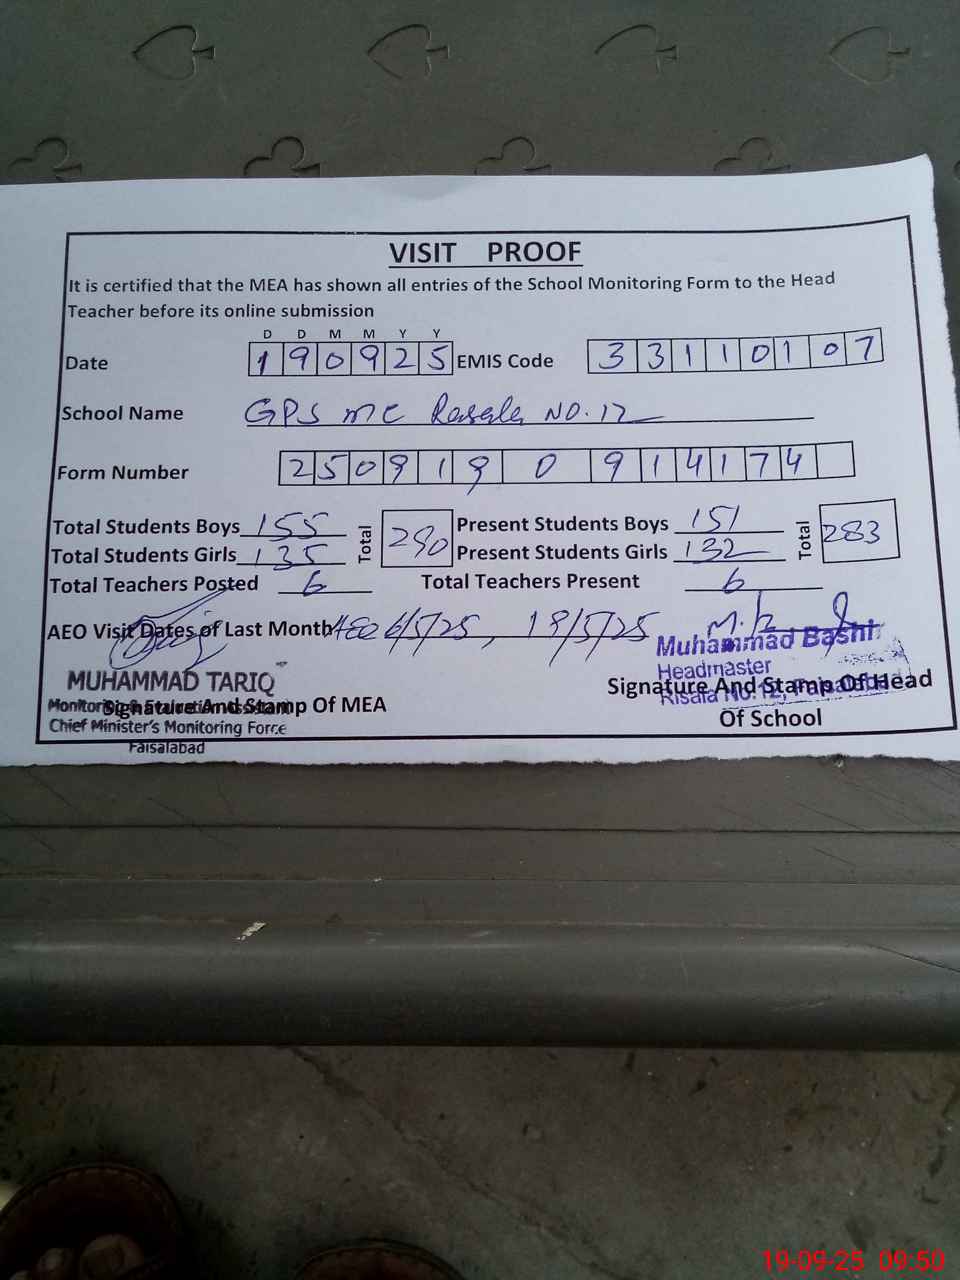 VISIT PROOF
It is certified that the MEA has shown all entries of the School Monitoring Form to the Head
Teacher before its online submission
D D M M Y Y
Date 1 9 0 9 2 5 EMIS Code 3 3 1 1 0 1 0 7
School Name GPS MC Rasala NO. 12
Form Number 2 5 0 9 1 9 0 9 1 4 1 7 4
Total Students Boys 155 Total 290 Present Students Boys 151 Total 283
Total Students Girls 135 Present Students Girls 132
Total Teachers Posted 6 Total Teachers Present 6
AEO Visit Dates of Last Month AEO 6/5/25, 19/5/25
Muhammad Bashir
Headmaster
Risala No. 12, Faisalabad
MUHAMMAD TARIQ
Signature And Stamp Of MEA
Monitoring & Evaluation Assistant
Chief Minister's Monitoring Force
Faisalabad
Signature And Stamp Of Head
Of School
19-09-25 09:50